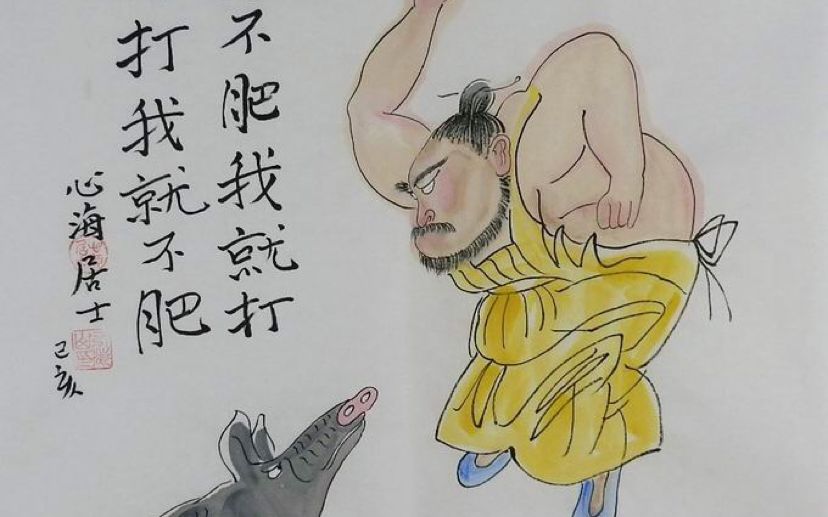 不肥我就打
打我就不肥
心海居士
己亥